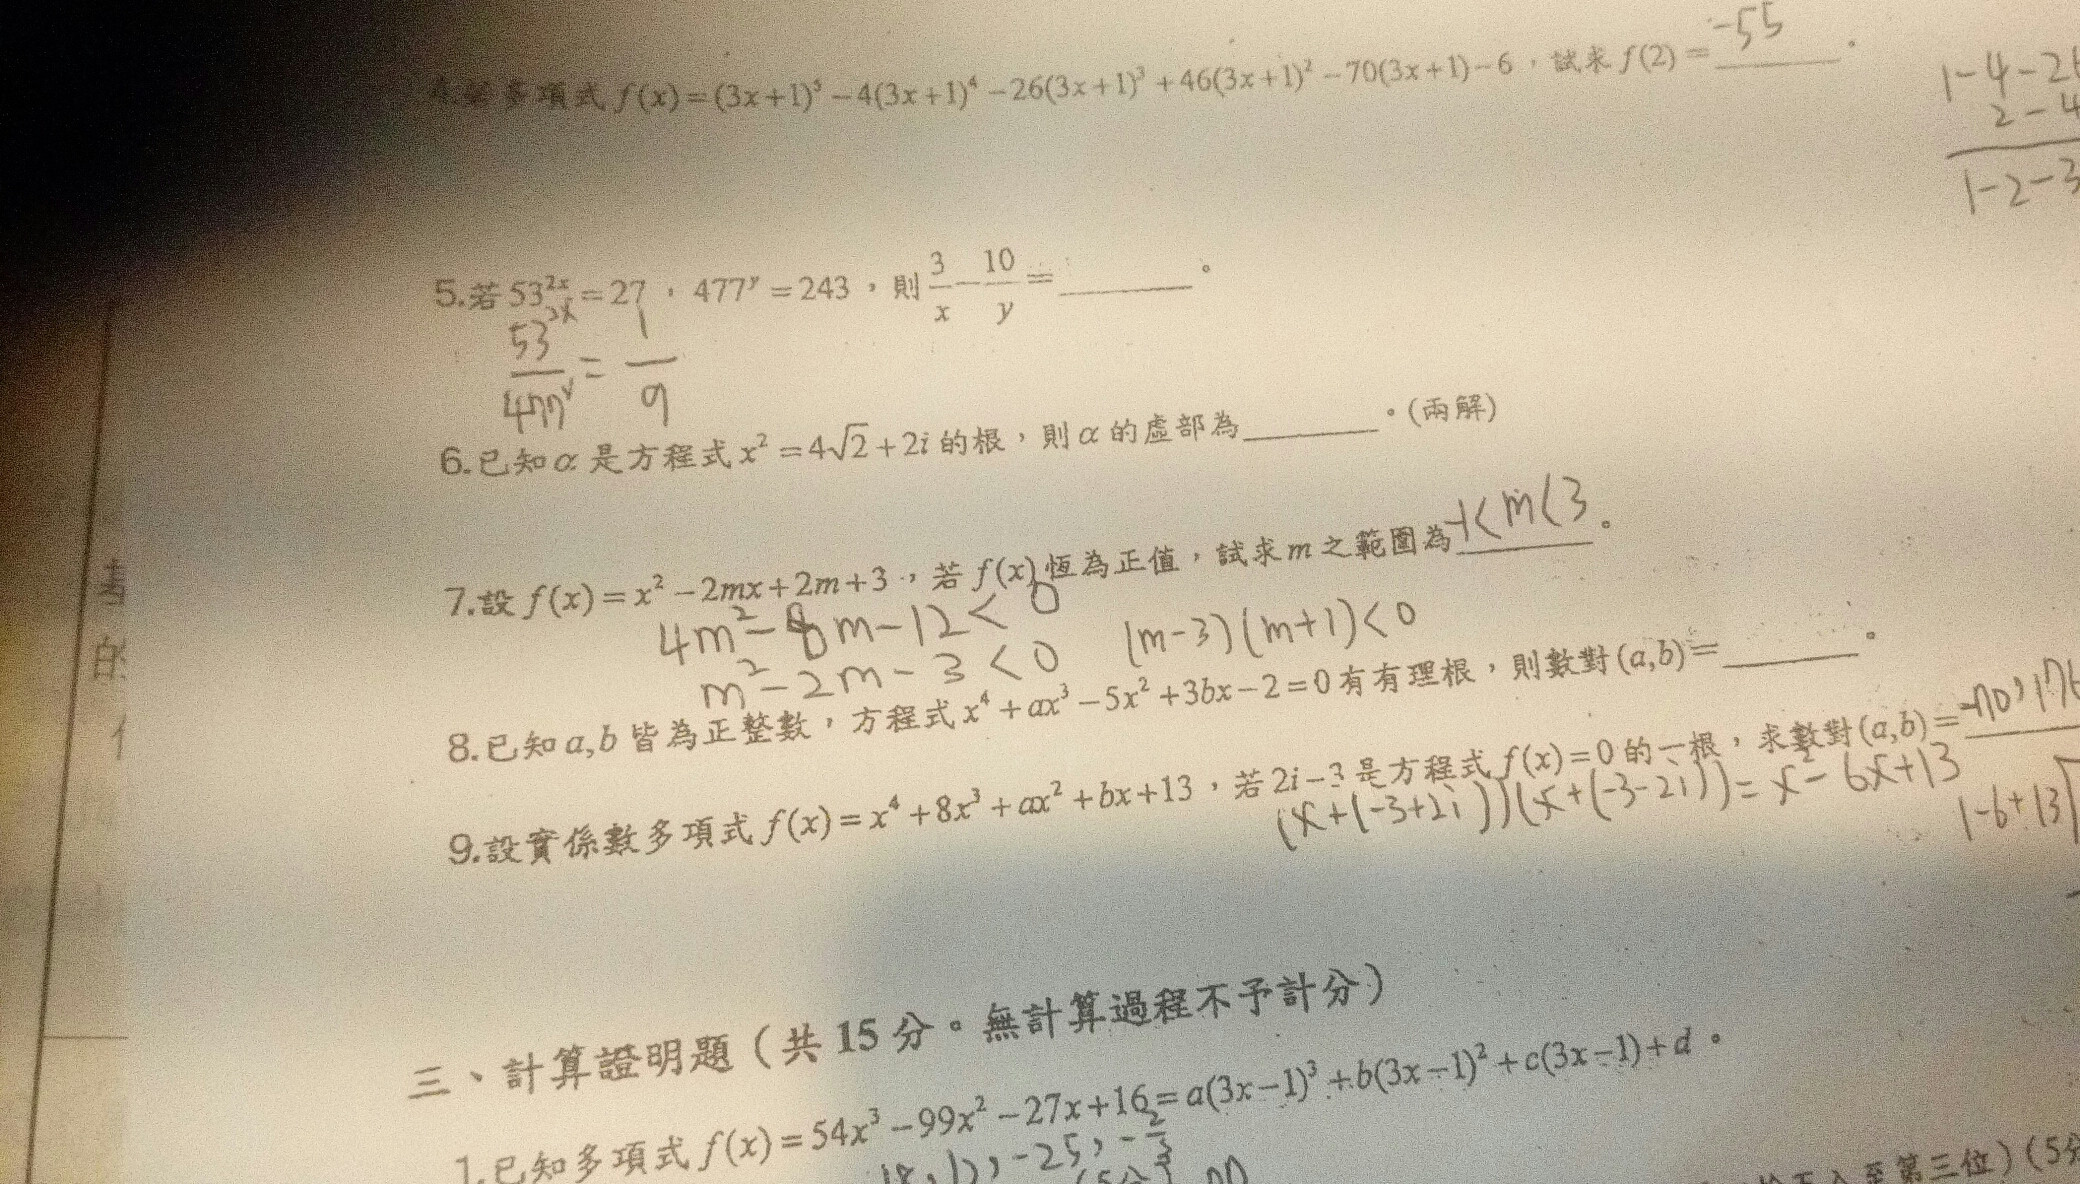 多項式 f(x)=(3x+1)⁵−4(3x+1)⁴−26(3x+1)³+46(3x+1)²−70(3x+1)−6，試求 f(2)=-55。
1-4-26
2-4
1-2-3
5.若 53²ˣ=27，477ʸ=243，則 3/x−10/y=______。
53²ˣ/477ʸ = 1/9
6.已知α是方程式 x²=4√2+2i 的根，則α的虛部為______。(兩解)
7.設 f(x)=x²−2mx+2m+3，若 f(x)恆為正值，試求m之範圍為-1<m<3。
4m²-8m-12<0
m²-2m-3<0 (m-3)(m+1)<0
8.已知a,b皆為正整數，方程式 x⁴+ax³−5x²+3bx−2=0有有理根，則數對(a,b)=______。
9.設實係數多項式 f(x)=x⁴+8x³+ax²+bx+13，若 2i−3是方程式 f(x)=0的一根，求數對(a,b)=-70,176
(x+(-3+2i))(x+(-3-2i))=x²-6x+13
1-6+13
考
的
三、計算證明題（共 15 分。無計算過程不予計分）
1.已知多項式 f(x)=54x³−99x²−27x+16=a(3x−1)³+b(3x−1)²+c(3x−1)+d。
入至第三位）(5分